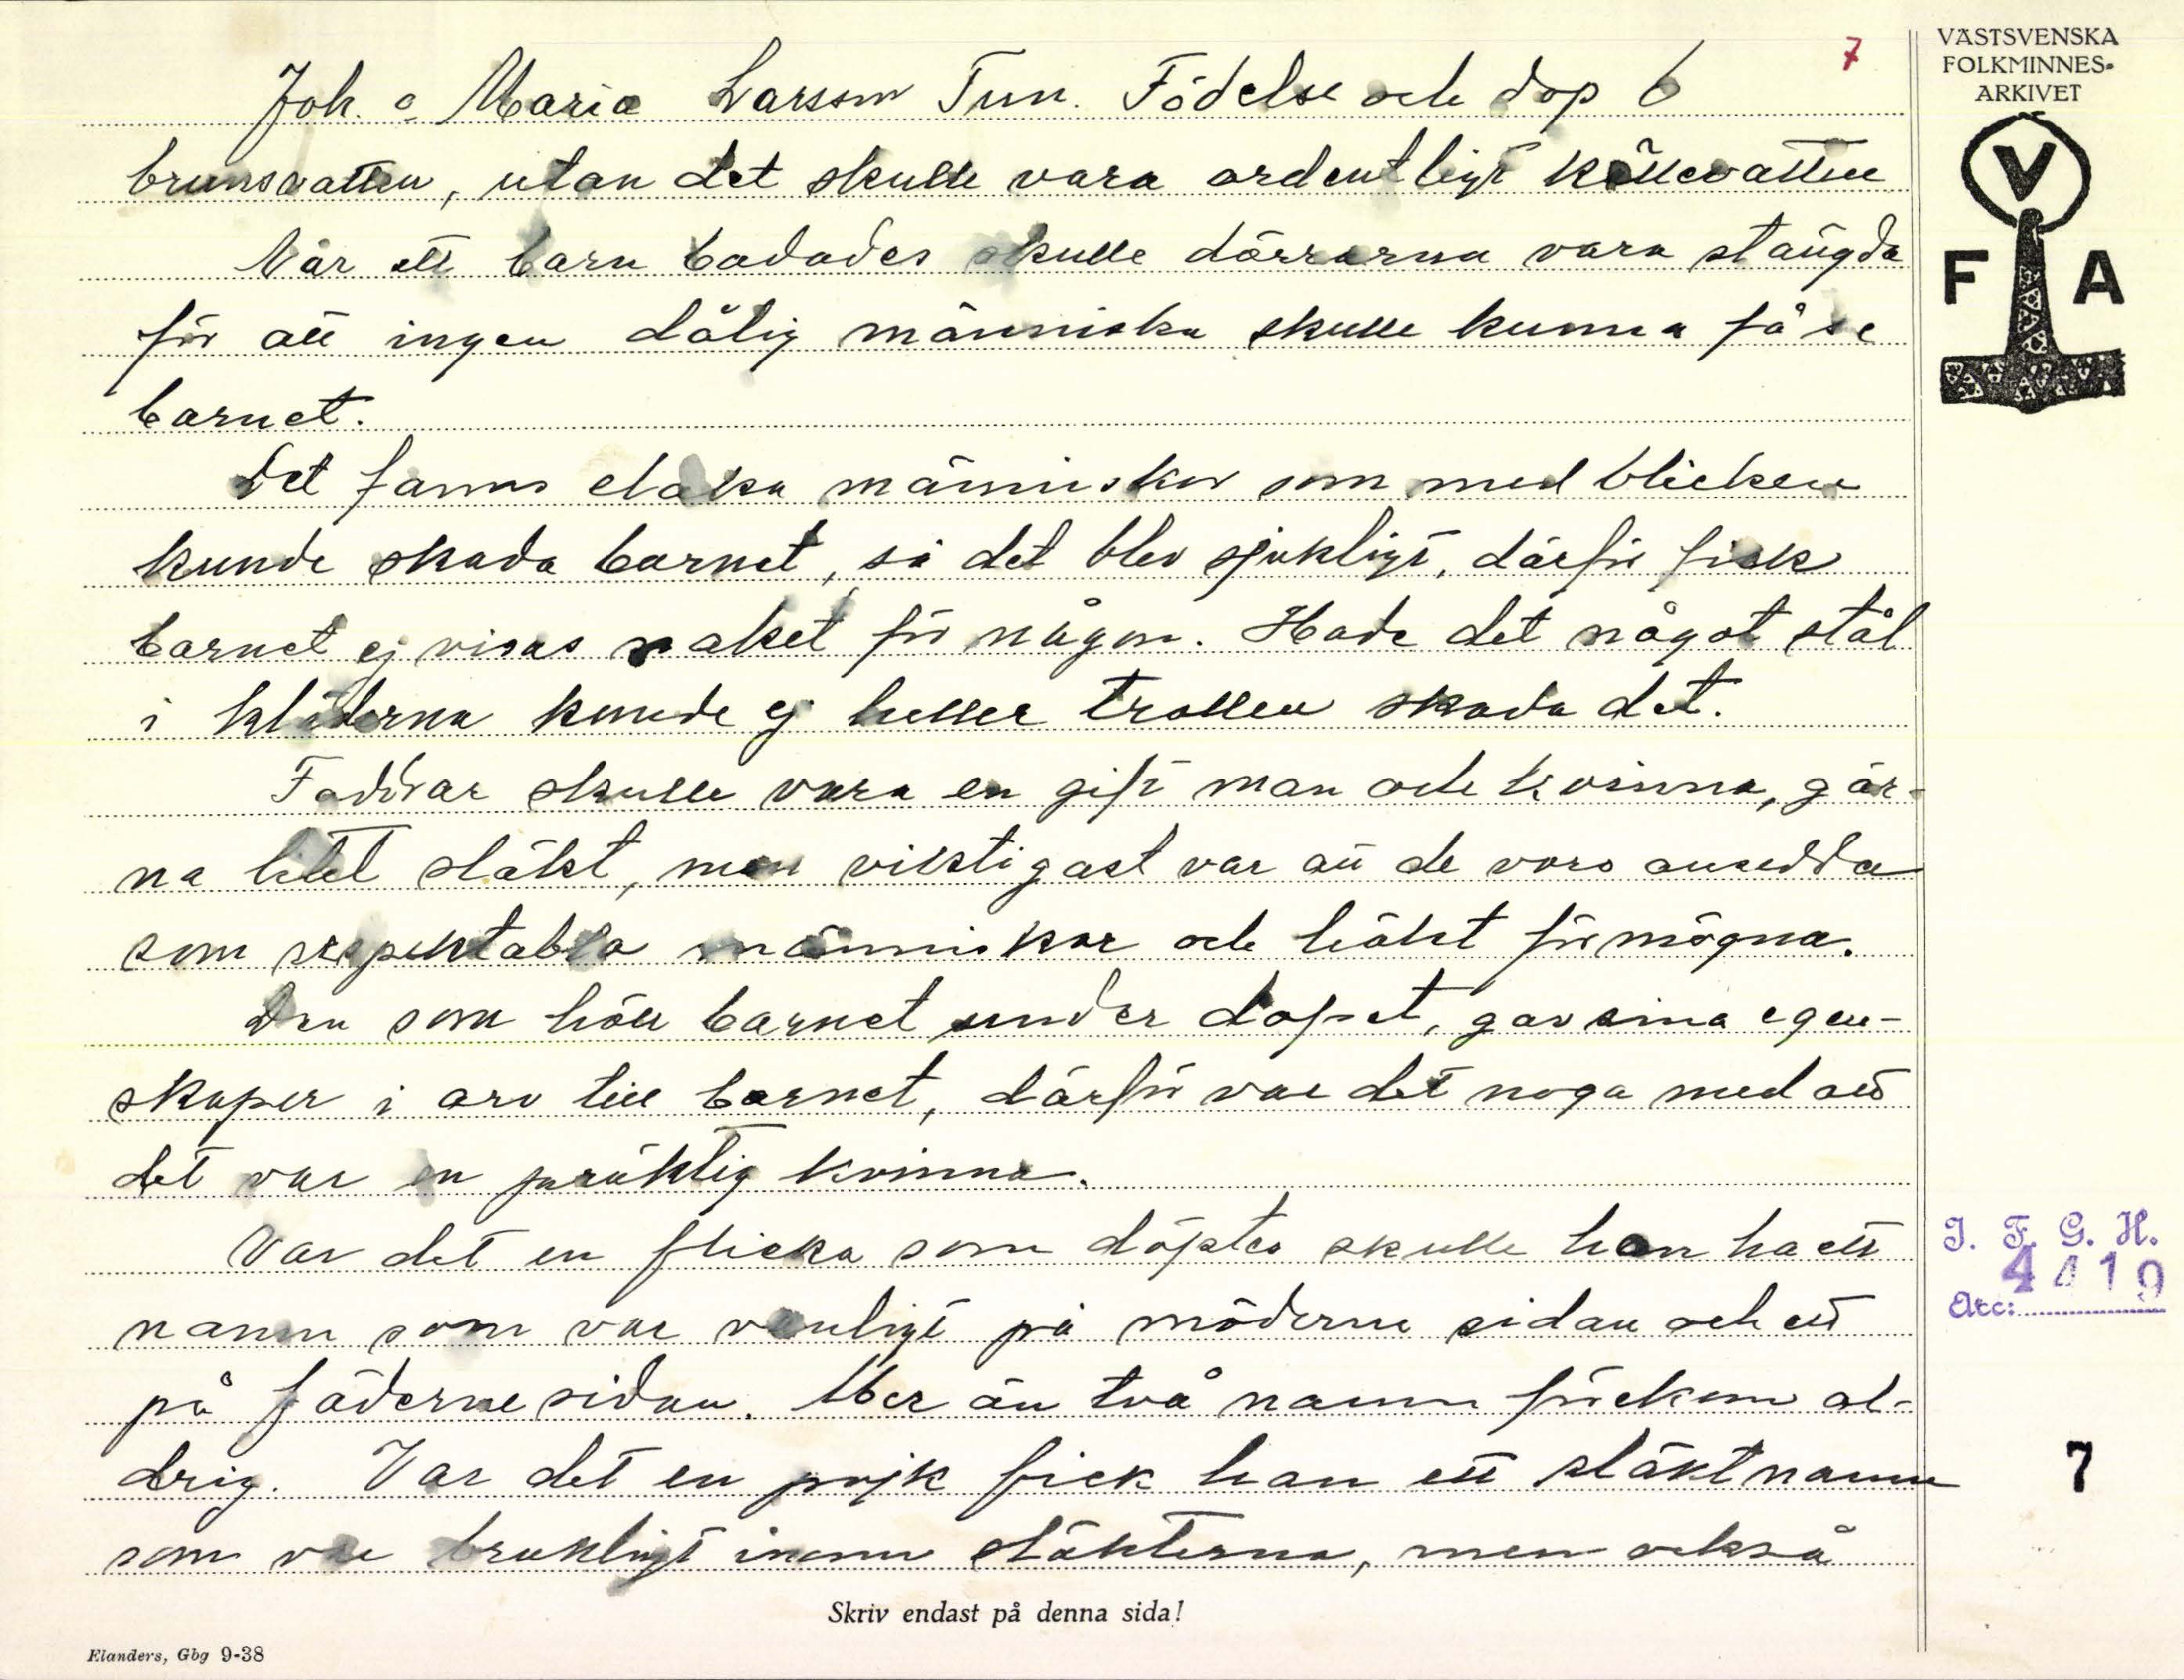 7
VÄSTSVENSKA
FOLKMINNES-
ARKIVET
V
F A
Joh. o Maria Larsson Tun. Födelse och dop 6
brunsvatten, utan det skulle vara ordentligt källevatten
När ett barn badades skulle dörrarna vara stängda
för att ingen dålig människa skulle kunna få se
barnet.
Det fanns elaka människor som med blicken
kunde skada barnet, så det blev sjukligt, därför fick
barnet ej visas naket för någon. Hade det något stål
i kläderna kunde ej heller trollen skada det.
Faddrar skulle vara en gift man och kvinna, gär-
na litet släkt, men viktigast var att de voro ansedda
som respektabla människor och hälst förmögna.
Den som höll barnet under dopet, gav sina egen-
skaper i arv till barnet, därför var det noga med att
det var en präktig kvinna.
Var det en flicka som döptes skulle hon ha ett
namn som var vanligt på möderne sidan och ett
på fädernesidan. Mer än två namn förekom al-
drig. Var det en pojk fick han ett släktnamn
som var brukligt inom släkterna, men också
I. F. G. H.
4419
Acc:
7
Skriv endast på denna sida!
Elanders, Gbg 9-38